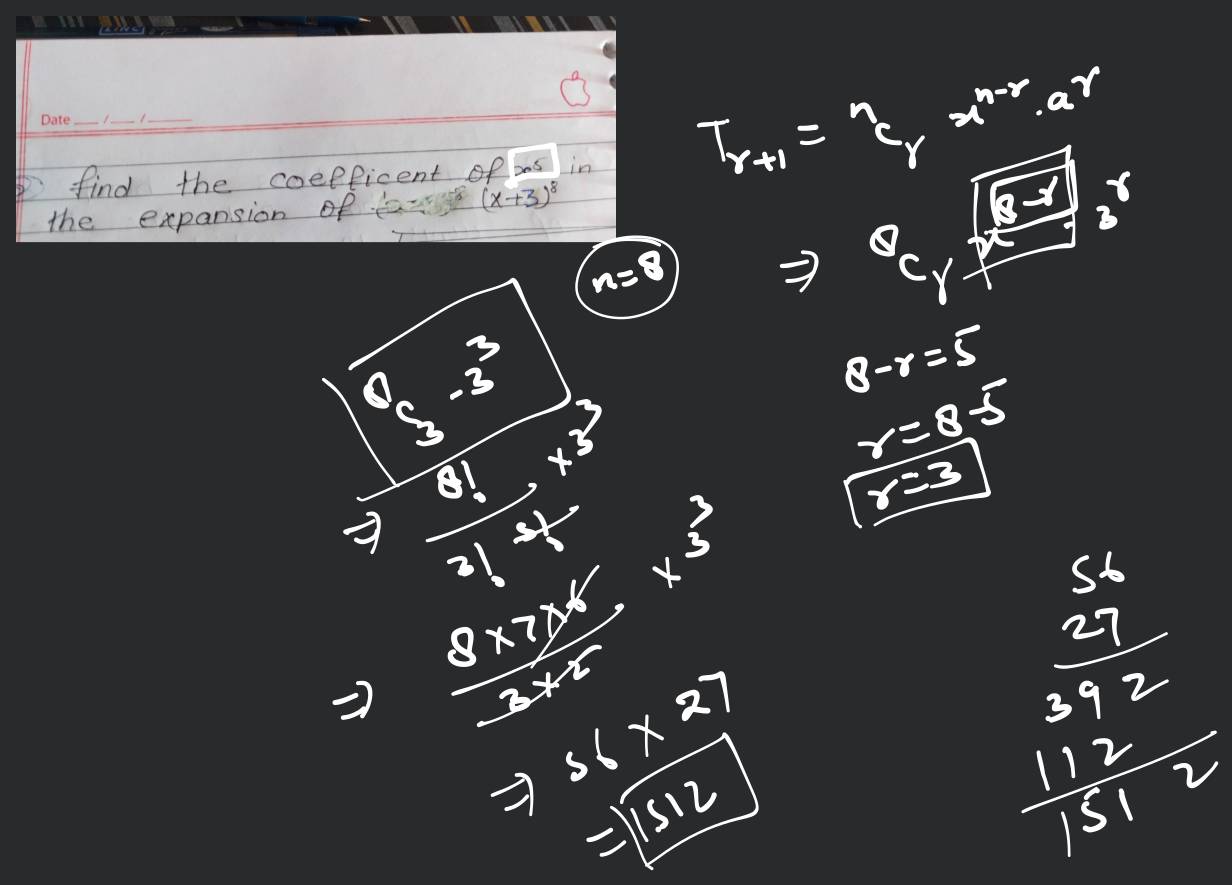 LINC
Date __/__/____
find the coefficent of x⁵ in
the expansion of (x+3)⁸
n=8
Tᵣ₊₁ = ⁿCᵣ xⁿ⁻ʳ . aʳ
⇒ ⁸Cᵣ x⁸⁻ʳ . 3ʳ
8-r=5
r=8-5
r=3
⁸C₃ . 3³
⇒ 8! / 3! 5! × 3³
⇒ 8×7×6 / 3×2 × 3³
⇒ 56 × 27
= 1512
56
27
392
112
1512